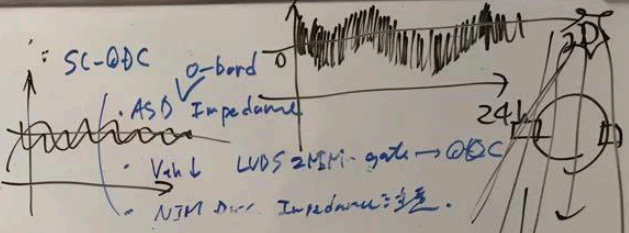 : SC-QDC
O-bord
0
ASD Impedance
24
Vth↓ LVDS 2 NIM - gate → QDC
NIM Impedance に注意.